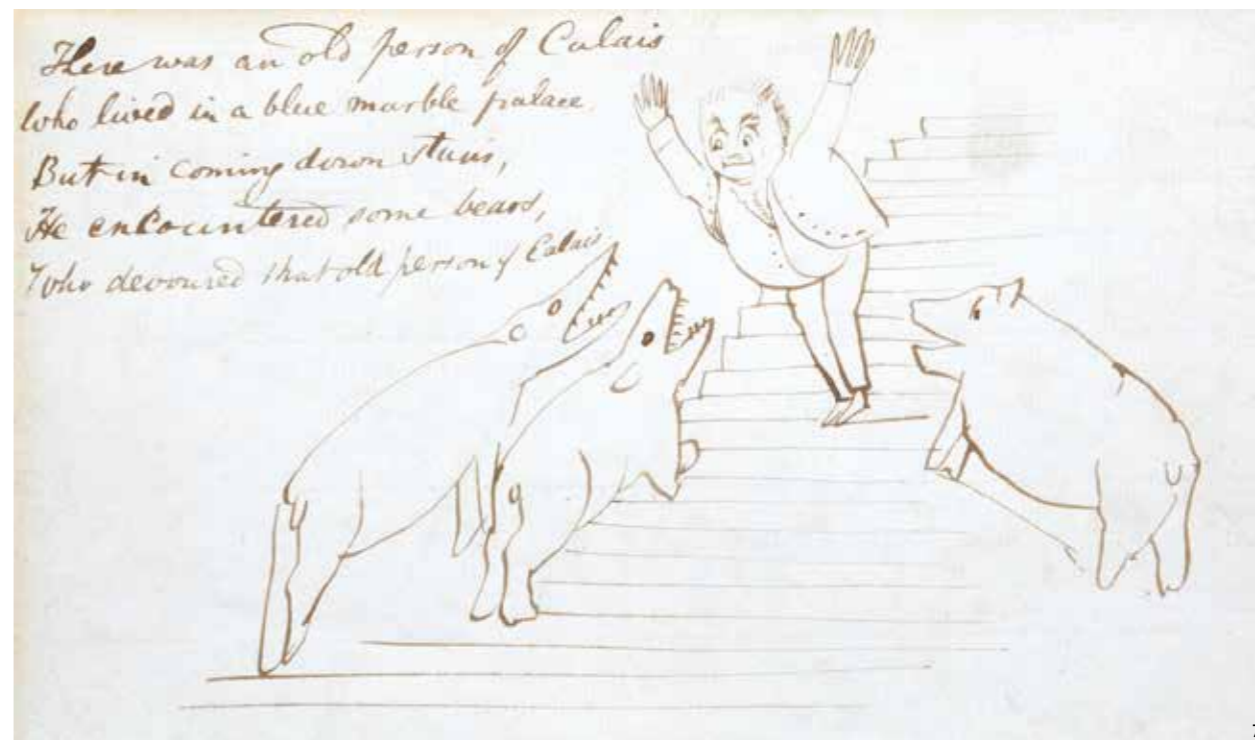 There was an old person of Calais
Who lived in a blue marble palace.
But in coming down stairs,
He encountered some bears,
Who devoured that old person of Calais